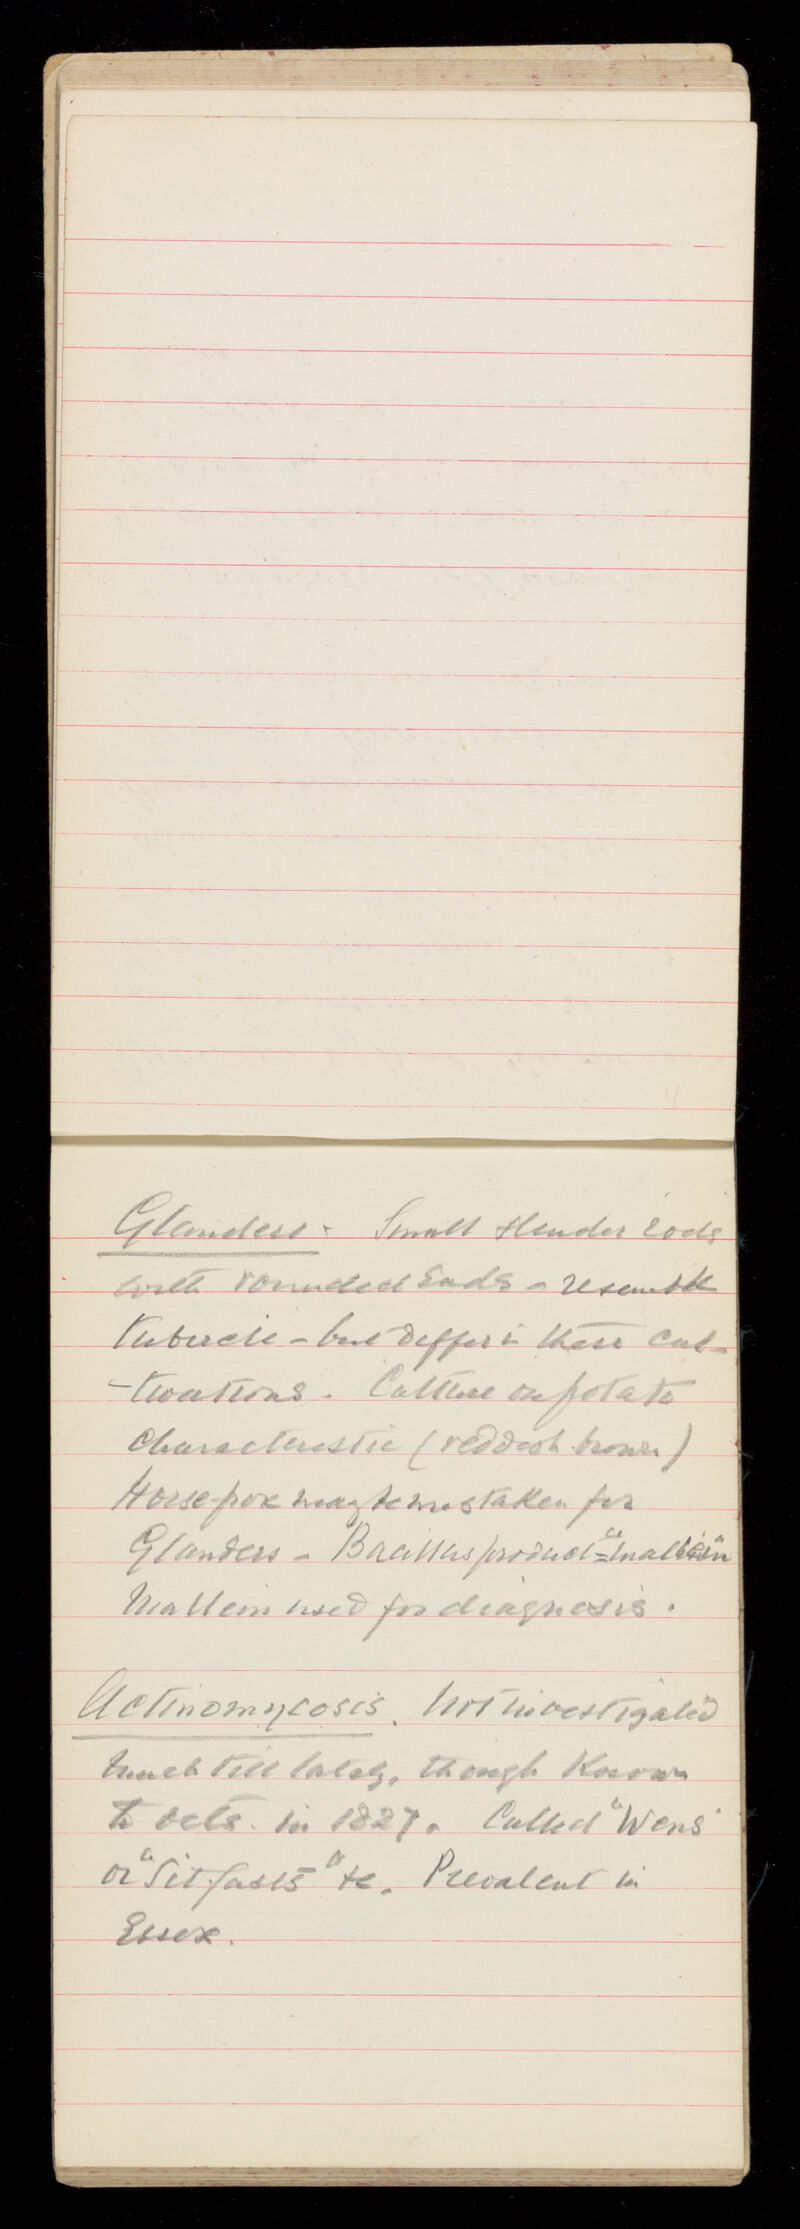 Glanders - Small slender rods
with rounded Ends - resemble
tubercle - but differ in their cul-
-tivations. Culture on potato
characteristic (reddish brown)
Horsepox may be mistaken for
Glanders - Bacillus product = "mallein"
Mallein used for diagnosis.
Actinomycosis. Not investigated
much till lately, though Known
to vets. in 1827. Called "Wens"
or "Sitfasts" &c. Prevalent in
Essex.